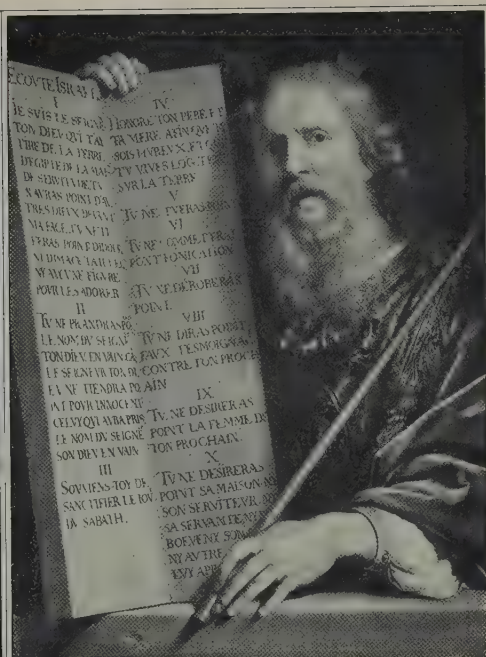 ECOVTE ISRAEL
I
JE SVIS LE SEIGNE
TON DIEV QVI T'AY
TIRE DE LA TERRE
D'EGIPTE DE LA MAI
DE SERVITVDE TV
N'AVRAS POINT D'AV
TRES DIEVX DEVANT
MA FACE. TV NE TE
FERAS POIN D'IDOLES,
NI D'IMAGE TAILLEE,
NY AVCVNE FIGVRE
POVR LES ADORER
II
TV NE PRANDRAS PO
LE NOM DV SEIGNE
TON DIEV EN VAIN CA
LE SEIGNEVR TON DI
EV NE TIENDRA PO
INT POVR INNOCENT
CELVY QVI AVRA PRIS
LE NOM DV SEIGNE
SON DIEV EN VAIN
III
SOVVIENS TOY DE
SANCTIFIER LE IOV
DV SABATH.
IV
HONORE TON PERE ET
TA MERE AFIN QVE
SOIS HVREVX ET QVE
TV VIVES LOG-TE
SVR LA TERRE
V
TV NE TVERAS POINT
VI
TV NE COMMETTERAS
POINT FONICATION
VII
TV NE DEROBERAS
POINT.
VIII
TV NE DIRAS POINT
FAVX TESMOIGNAGE
CONTRE TON PROCH
AIN
IX
TV NE DESIRERAS
POINT LA FEMME DE
TON PROCHAIN.
X
TV NE DESIRERAS
POINT SA MAISON NY
SON SERVITEVR NY
SA SERVANTE NY
BOEVF NY SON
NY AVTRE
LVY APP